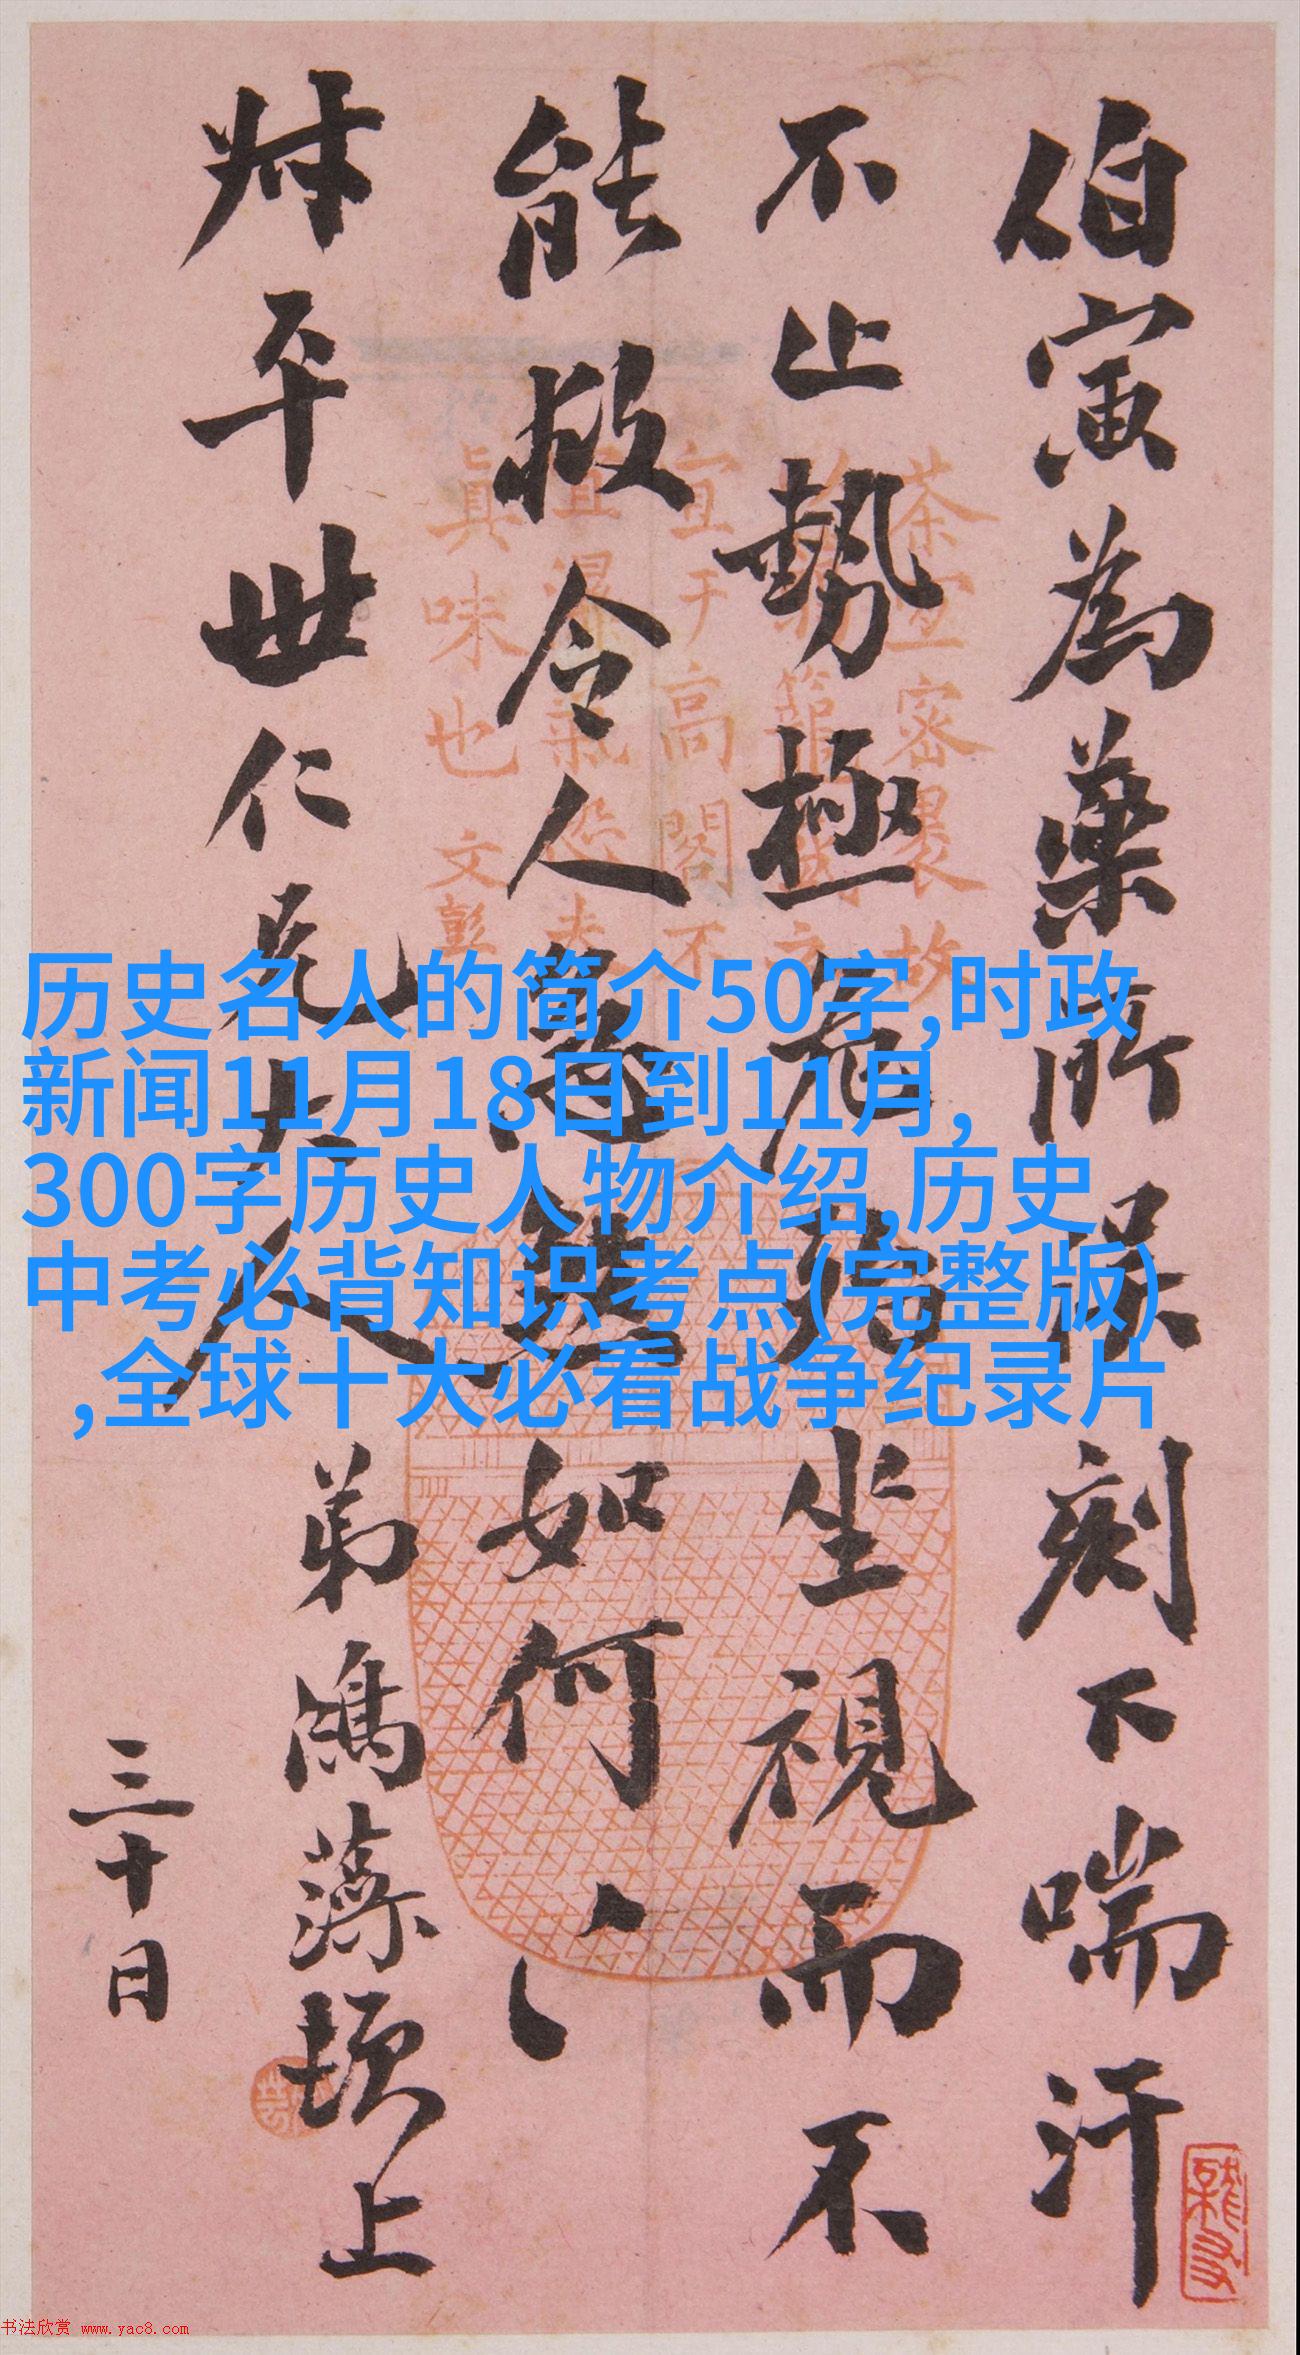 伯寅為藥所誤刻下喘汗
不止勢極危殆坐視而不
能救令人急煞如何〻
叔平世仁兄大人
弟鴻藻頓上
三十日
茶宜密裹故
宜于高閣不
真味也 文彭
历史名人的简介50字,时政
新闻11月18日到11月,
300字历史人物介绍,历史
中考必背知识考点(完整版)
,全球十大必看战争纪录片
书法欣赏 www.yac8.com